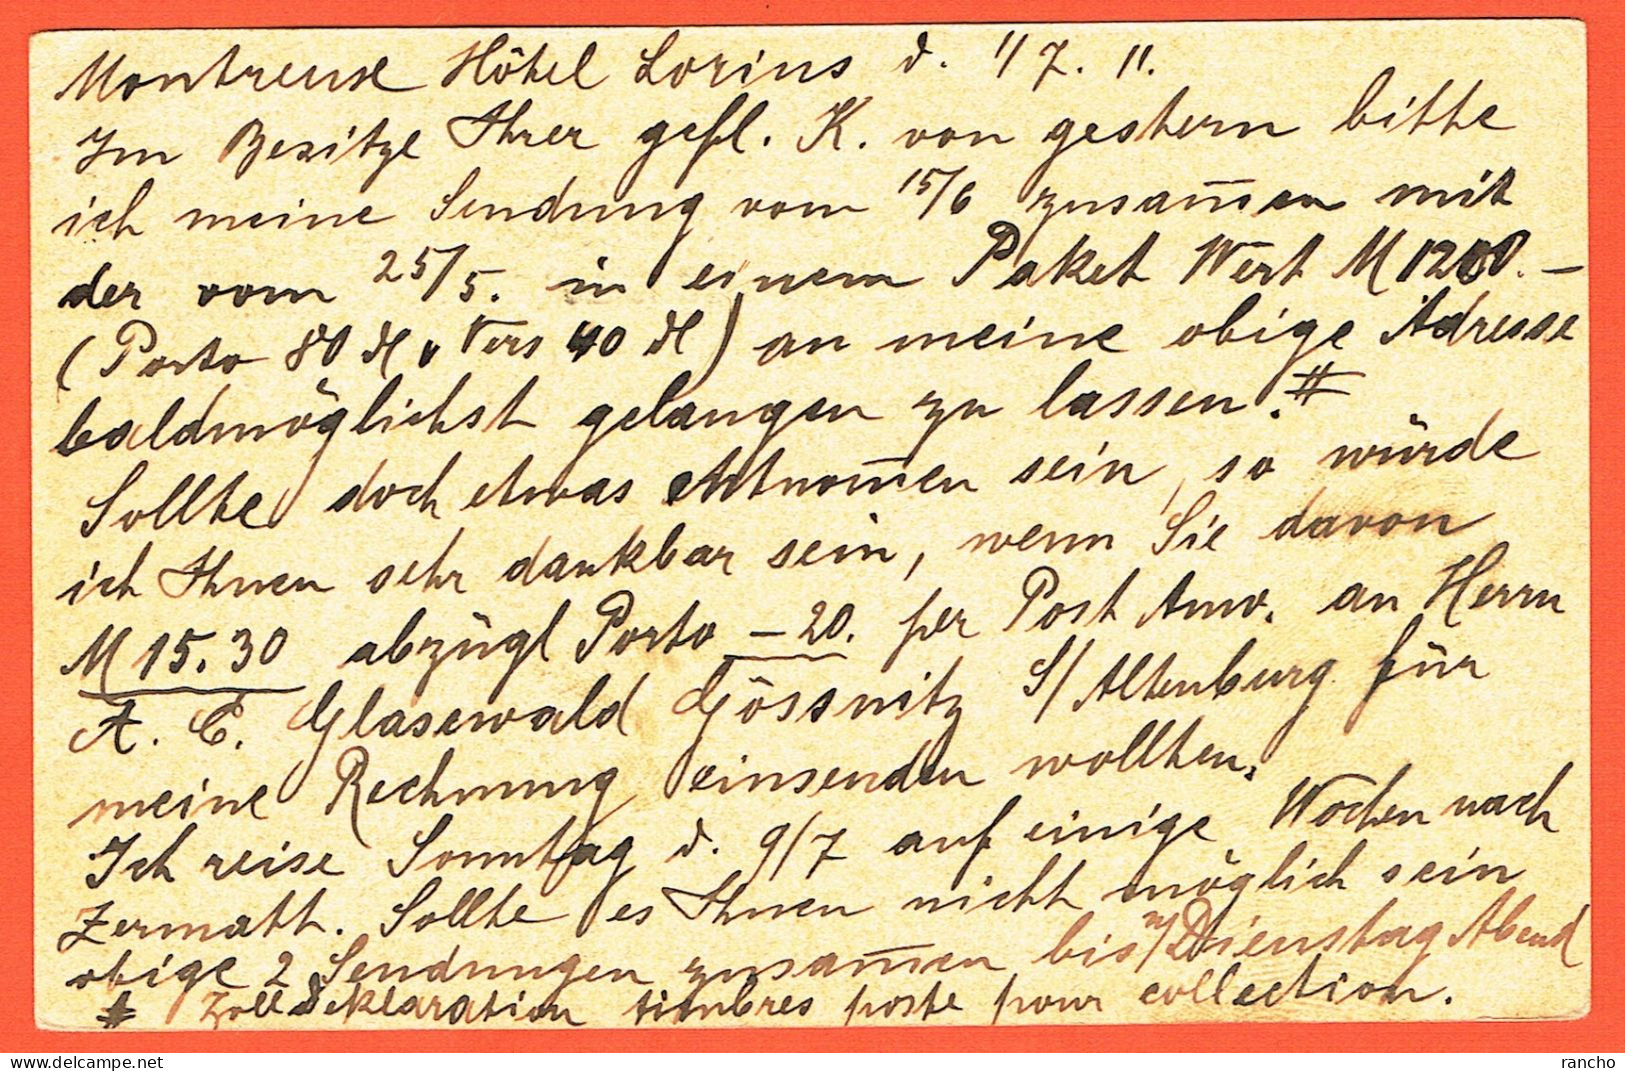 Montreux Hôtel Lorius d. 1/7. 11.
Im Besitze Ihrer gefl. K. von gestern bitte
ich meine Sendung vom 15/6 zusam̅en mit
der vom 25/5. in einem Paket Wert M 1200.–
(Porto 80 ₰ u Vers 40 ₰) an meine obige Adresse
baldmöglichst gelangen zu lassen. #
Sollte doch etwas entnom̅en sein, so würde
ich Ihnen sehr dankbar sein, wenn Sie davon
M 15.30 abzügl Porto –20. per Post Anw. an Herrn
A. E. Glasewald Gössnitz S/Altenburg für
meine Rechnung einsenden wollten.
Ich reise Sonntag d. 9/7 auf einige Wochen nach
Zermatt. Sollte es Ihnen nicht möglich sein
obige 2 Sendungen zusam̅en bis Dienstag Abend
# Zolldeklaration timbres poste pour collection.
rancho